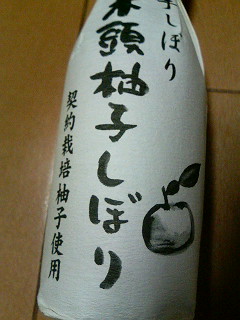 手しぼり
木頭柚子しぼり
契約栽培柚子使用